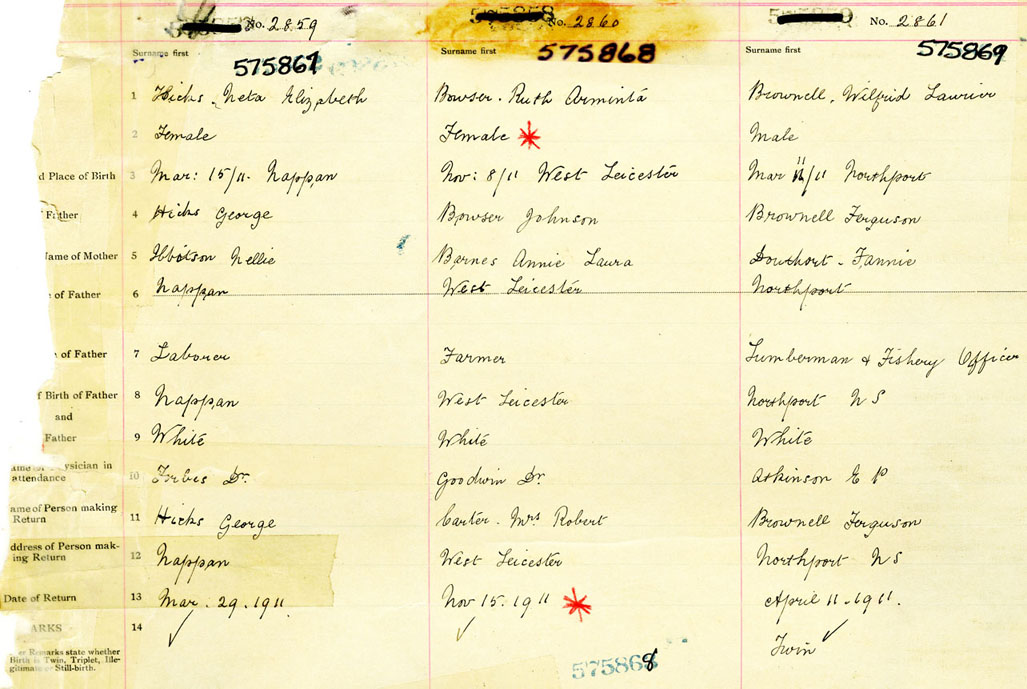 No. 2859 No. 2860 No. 2861
Surname first Surname first Surname first
575867 575868 575869
1 Hicks, Neta Elizabeth Bowser. Ruth Arminta Brownell, Wilfrid Laurier
2 Female Female Male
d Place of Birth 3 Mar: 15/11. Nappan Nov: 8/11 West Leicester Mar 11/11 Northport
Father 4 Hicks George Bowser Johnson Brownell Ferguson
Name of Mother 5 Ibbitson Nellie Barnes Annie Laura Fannie
e of Father 6 Nappan West Leicester Northport
of Father 7 Laborer Farmer Lumberman & Fishery Officer
f Birth of Father 8 Nappan West Leicester Northport N S
and
Father 9 White White White
ysician in
attendance 10 Forbes Dr. Goodwin Dr. Atkinson E P
ame of Person making
Return 11 Hicks George Carter. Mrs Robert Brownell Ferguson
ddress of Person mak-
ing Return 12 Nappan West Leicester Northport N S
Date of Return 13 Mar. 29. 1911 Nov 15. 1911 April 11. 1911.
ARKS 14
er Remarks state whether Twin
Birth is Twin, Triplet, Ille-
gitimate or Still-birth.
575868